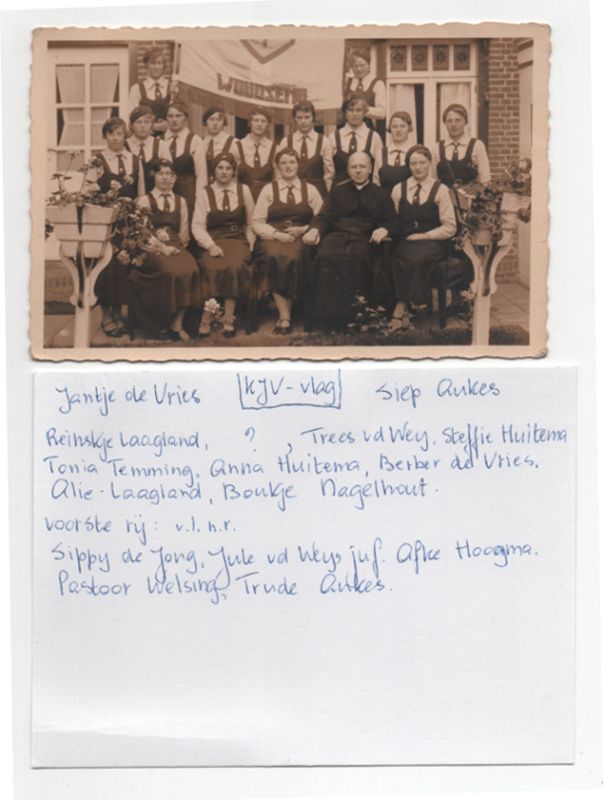 WOUDSEND
Jantje de Vries KJV-vlag Siep Aukes
Reinskje Laagland, ?, Trees vd Wey, Steffie Huitema
Tonia Temming, Anna Huitema, Berber de Vries,
Alie Laagland, Boukje Nagelhout.
voorste rij: v.l.n.r.
Sippy de Jong, Jule vd Weys juf. Afke Hoogma.
Pastoor Welsing, Trude Aukes.